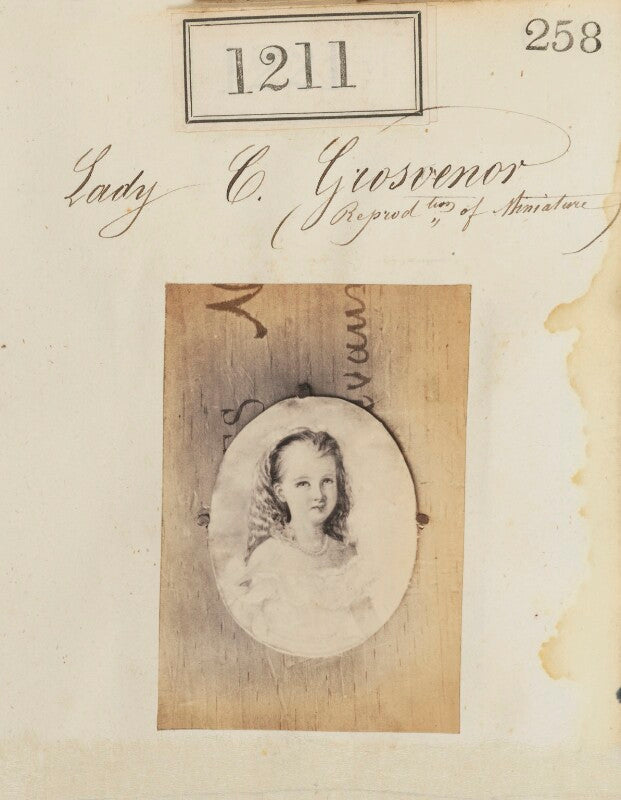 258
1211
Lady C. Grosvenor
(Reprod.tion of Miniature)